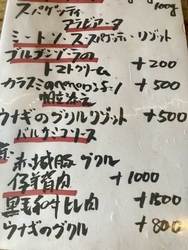 スパゲッティ 100g
アラビアータ
ミートソース スパゲッティ・リゾット
ゴルゴンゾーラの
トマトクリーム +200
カラスミのペペロンチーノ +500
ウナギのグリルリゾット +500
バルサミコソース
赤城豚グリル
仔羊背肉 +1000
黒毛和牛ヒレ肉 +1500
ウナギのグリル +800